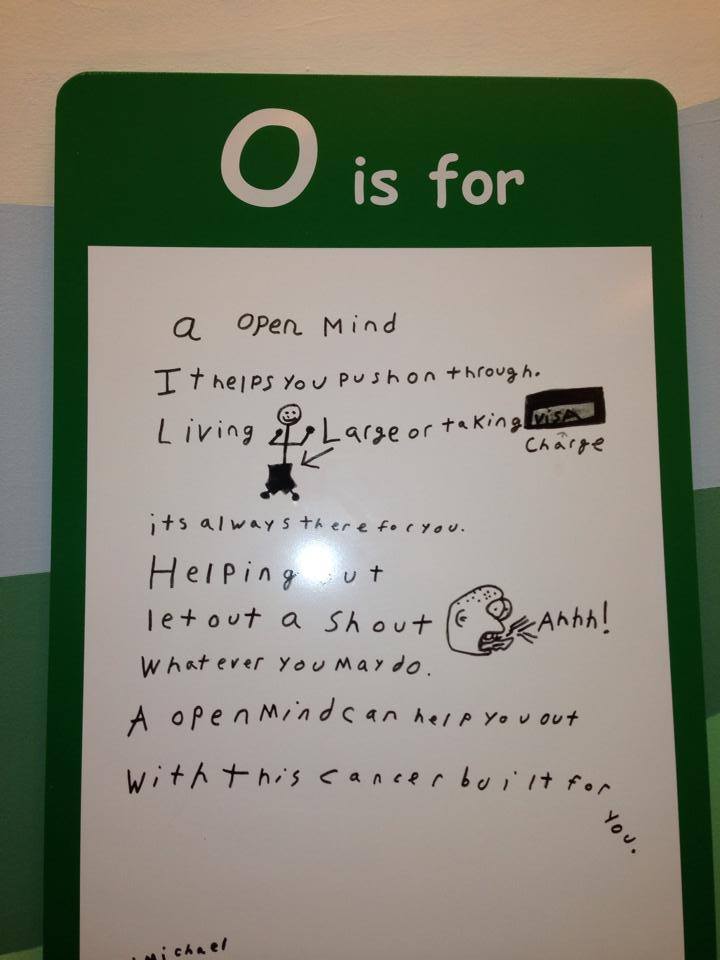 O is for
a open Mind
It helps you push on through.
Living Large or taking VISA
Charge
its always there for you.
Helping ut
let out a shout Ahhh!
Whatever you May do.
A open Mind can help you out
With this cancer built for
you.
Michael